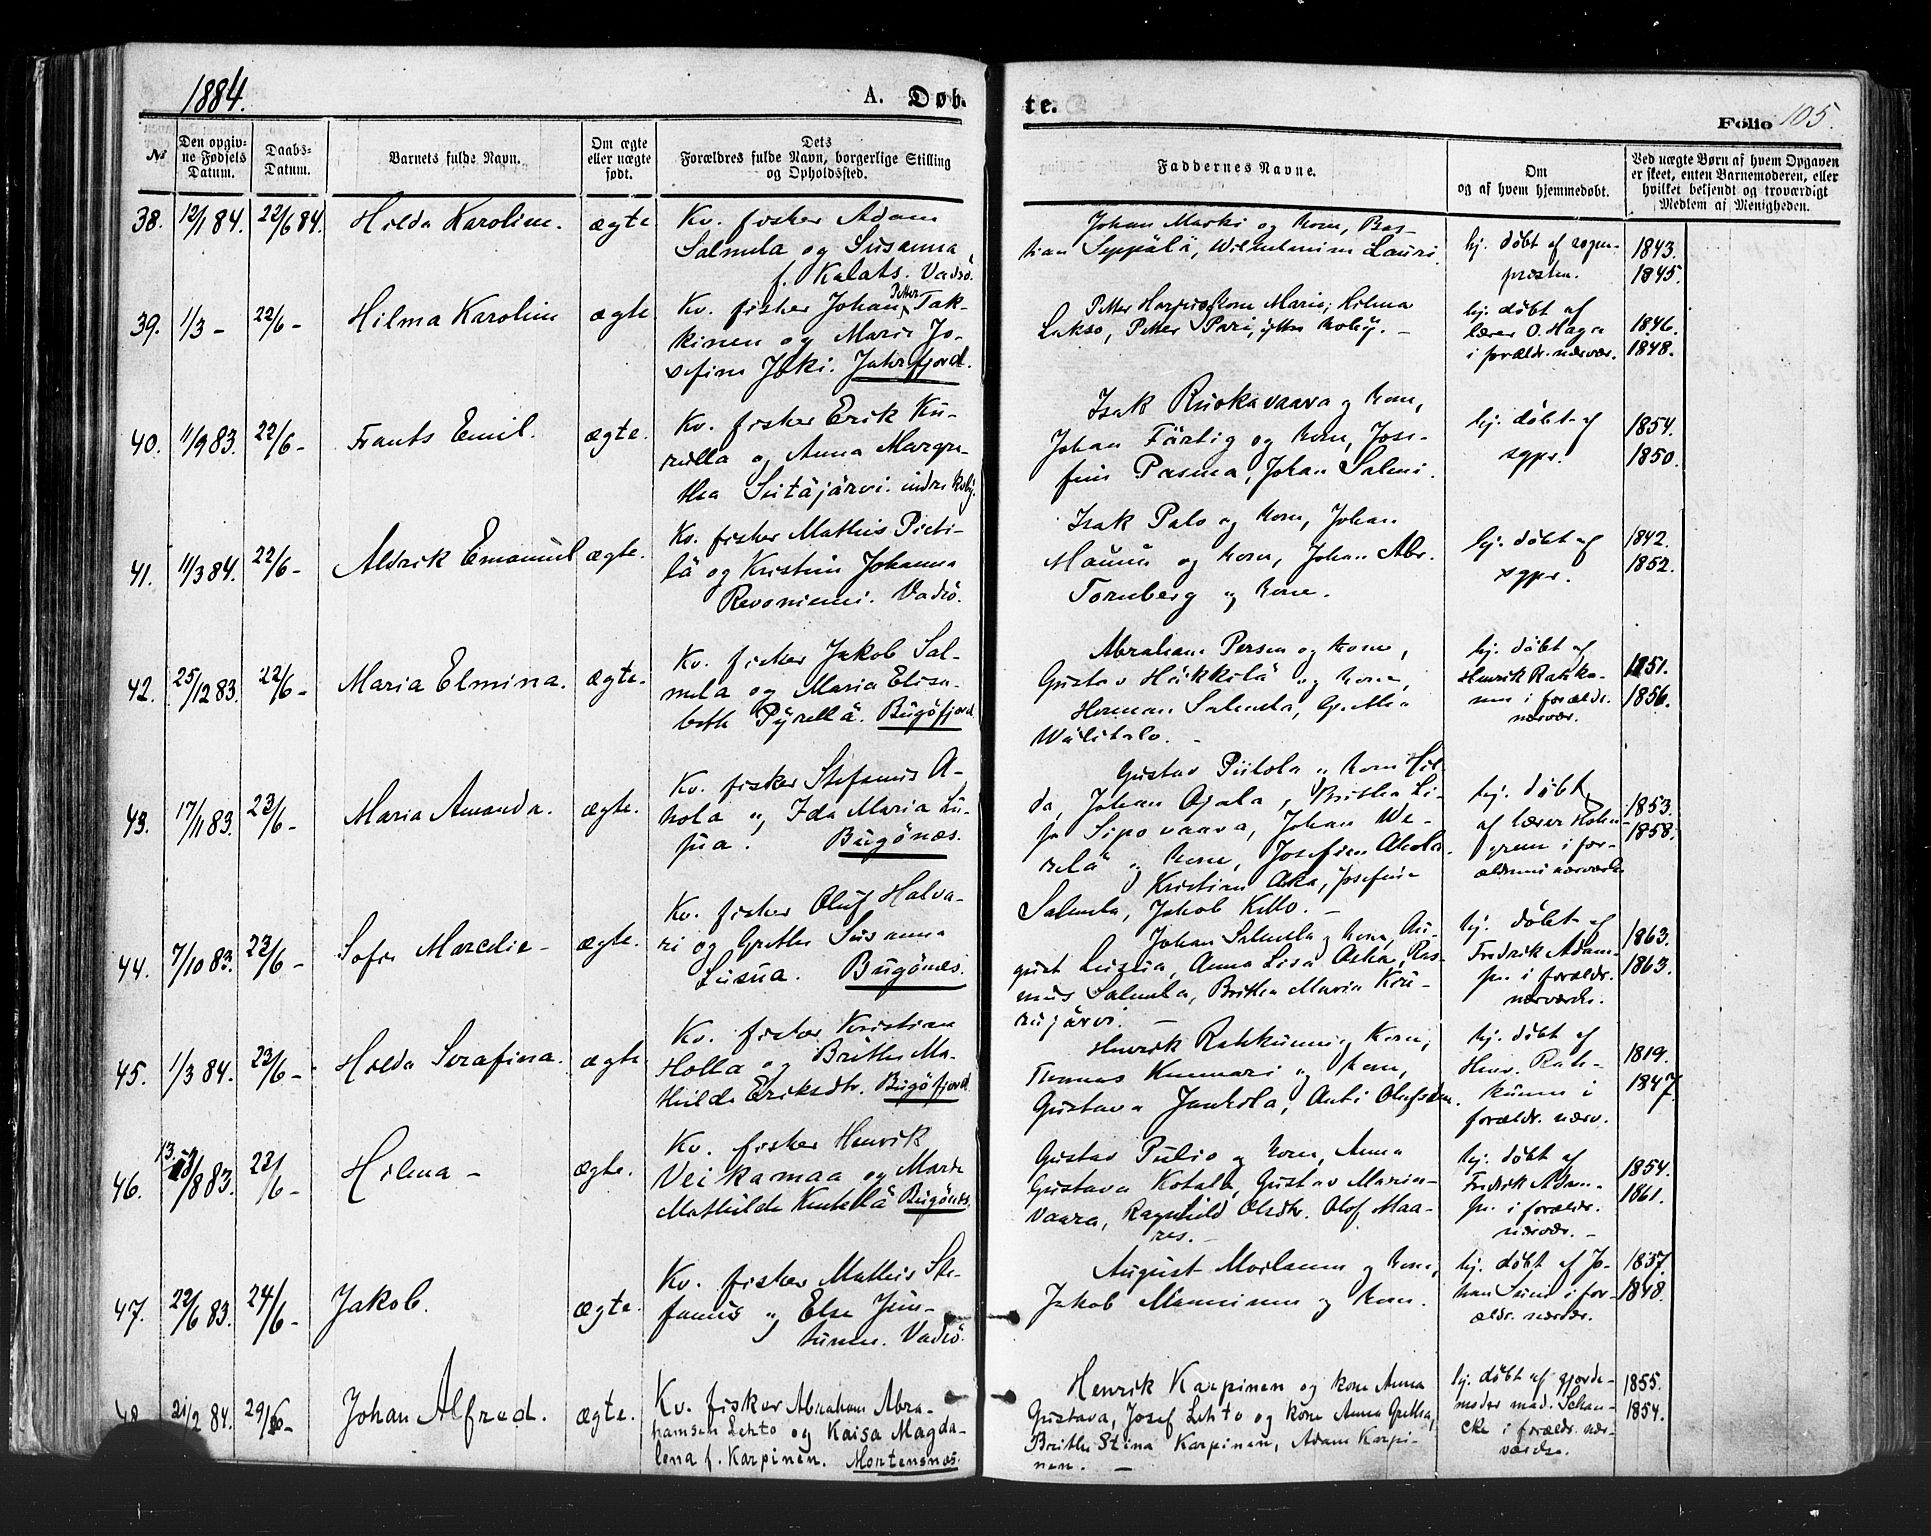 1884.
A. Døb-
te.
Folio 105.
№
Den opgiv-
ne Fødsels
Datum.
Daabs-
Datum.
Barnets fulde Navn.
Om ægte
eller uægte
født.
Dets
Forældres fulde Navn, borgerlige Stilling
og Opholdssted.
Faddernes Navne.
Om
og af hvem hjemmedøbt.
Ved uægte Børn af hvem Opgaven
er skeet, enten Barnemoderen, eller
hvilket bekjendt og troværdigt
Medlem af Menigheden.
38. 12/1 84. 22/6 84. Hilda Karoline. ægte
Kv. fisker Adam
Salmela og Susanna
f. Kalats. Vadsö.
Johan Marki og kone, Bas-
tian Seppälä, Wilhelmina Lauri.
hj. døbt af sogne-
presten.
1843.
1845.
39. 1/3 - 22/6 - Hilma Karolin ægte
Kv. fisker Johan Petter Tak-
kinen og Maria Jo-
sefina Joki. Jakobsfjord.
Petter Harju kone Maria, Hilma
Lakso, Petter Pari, ytre Koby. -
hj. døbt af
lærer O. Haga
i forældr. nærvær.
1846.
1848.
40. 11/9 83. 22/6 - Frants Emil. ægte.
Kv. fisker Erik Ku-
rulla og Anna Margre-
tha Suitäjärvi. indre Koby.
Isak Ruokavaara og kone,
Johan Färtig og kone, Jose-
fine Pasma, Johan Salmi.
hj. døbt af
sgpr.
1854.
1850.
41. 11/3 84. 22/6 - Aldrik Emanuel ægte.
Kv. fisker Mathis Pieti-
lä og Kristina Johanna
Revoniemi. Vadsö.
Isak Palo og kone, Johan
Maunu og kone, Johan Abr.
Tornberg og kone.
hj. døbt af
sgpr.
1842.
1852.
42. 25/12 83. 22/6 - Maria Elmina. ægte.
Kv. fisker Jakob Sal-
mela og Maria Elisa-
beth Pyrellä. Bugöfjord.
Abraham Persen og kone,
Gustav Häkkilä og kone,
Herman Salmela, Gretha
Wälitalo. -
hj. døbt af
Henrik Rakku-
nen i forældr.
nærvær.
1851.
1856.
43. 17/11 83. 23/6 - Maria Amanda. ægte.
Kv. fisker Stefanus A-
hola og Ida Maria Lu-
sua. Bugönæs.
Gustav Piitola og kone Hil-
da, Johan Ojala, Britha Li-
sa Sipovaara, Johan We-
relä og kone, Josefina Ahola
Kristina Aska, Josefine
Salmela, Jakob Kello. -
hj. døbt
af lærer Holm-
gren i for-
ældrenes nærværelse
1853.
1858.
44. 7/10 83. 23/6 - Sofie Marcelie - ægte.
Kv. fisker Oluf Halva-
ri og Gretha Susanna
Lusua. Bugönæs.
Johan Salmela og kone, Au-
gust Lusua, Anna Lisa Aska, Ras-
mus Salmela, Britha Maria Kou-
rujärvi. -
hj. døbt af
Fredrik Adam-
sen i forældr.
nærværelse.
1863.
1863.
45. 1/3 84. 23/6 - Hilda Serafina. ægte
Kv. fisker Kristian
Holla og Britha Ma-
thilde Eriksdtr. Bugöfjord
Henrik Rakkunen og kone,
Thomas Kummari og kone,
Gustava Jankola, Anti Olufsen.
hj. døbt af
Henr. Rak-
kunen i
forældr. nærv.
1819.
1847.
46. 13/8 83. 23/6 - Hilma - ægte.
Kv. fisker Henrik
Veikamaa og Maria
Mathilde Kentellä Bugönæs.
Gustav Pulio og kone, Anna
Gustava Kotala, Gustav Marin-
vaara, Ragnhild Olsdtr. Olof Maa-
res. -
hj. døbt af
Fredrik Adam-
sen i forældr.
nærvær.
1854.
1861.
47. 22/6 83. 24/6 - Jakob. ægte.
Kv. fisker Mathis Ste-
fanus og Else Jun-
tunen. Vadsö.
August Morlamm og kone,
Jakob Manninen og kone.
hj. døbt af Jo-
han Suni i for-
ældr. nærvær.
1837.
1848.
48. 21/2 84. 29/6 - Johan Alfred. ægte.
Kv. fisker Abraham Abra-
hamsen Lehto og Kaisa Magda-
lena f. Karpinen. Mortensnæs.
Henrik Karpinen og kone Anna
Gustava, Josef Lehto og kone Anna Gretha,
Britha Stina Karpinen, Adam Karpi-
nen. -
hj. døbt af gjorde-
moder mad. Schan-
cke i forældr. nær-
værelse.
1855.
1854.